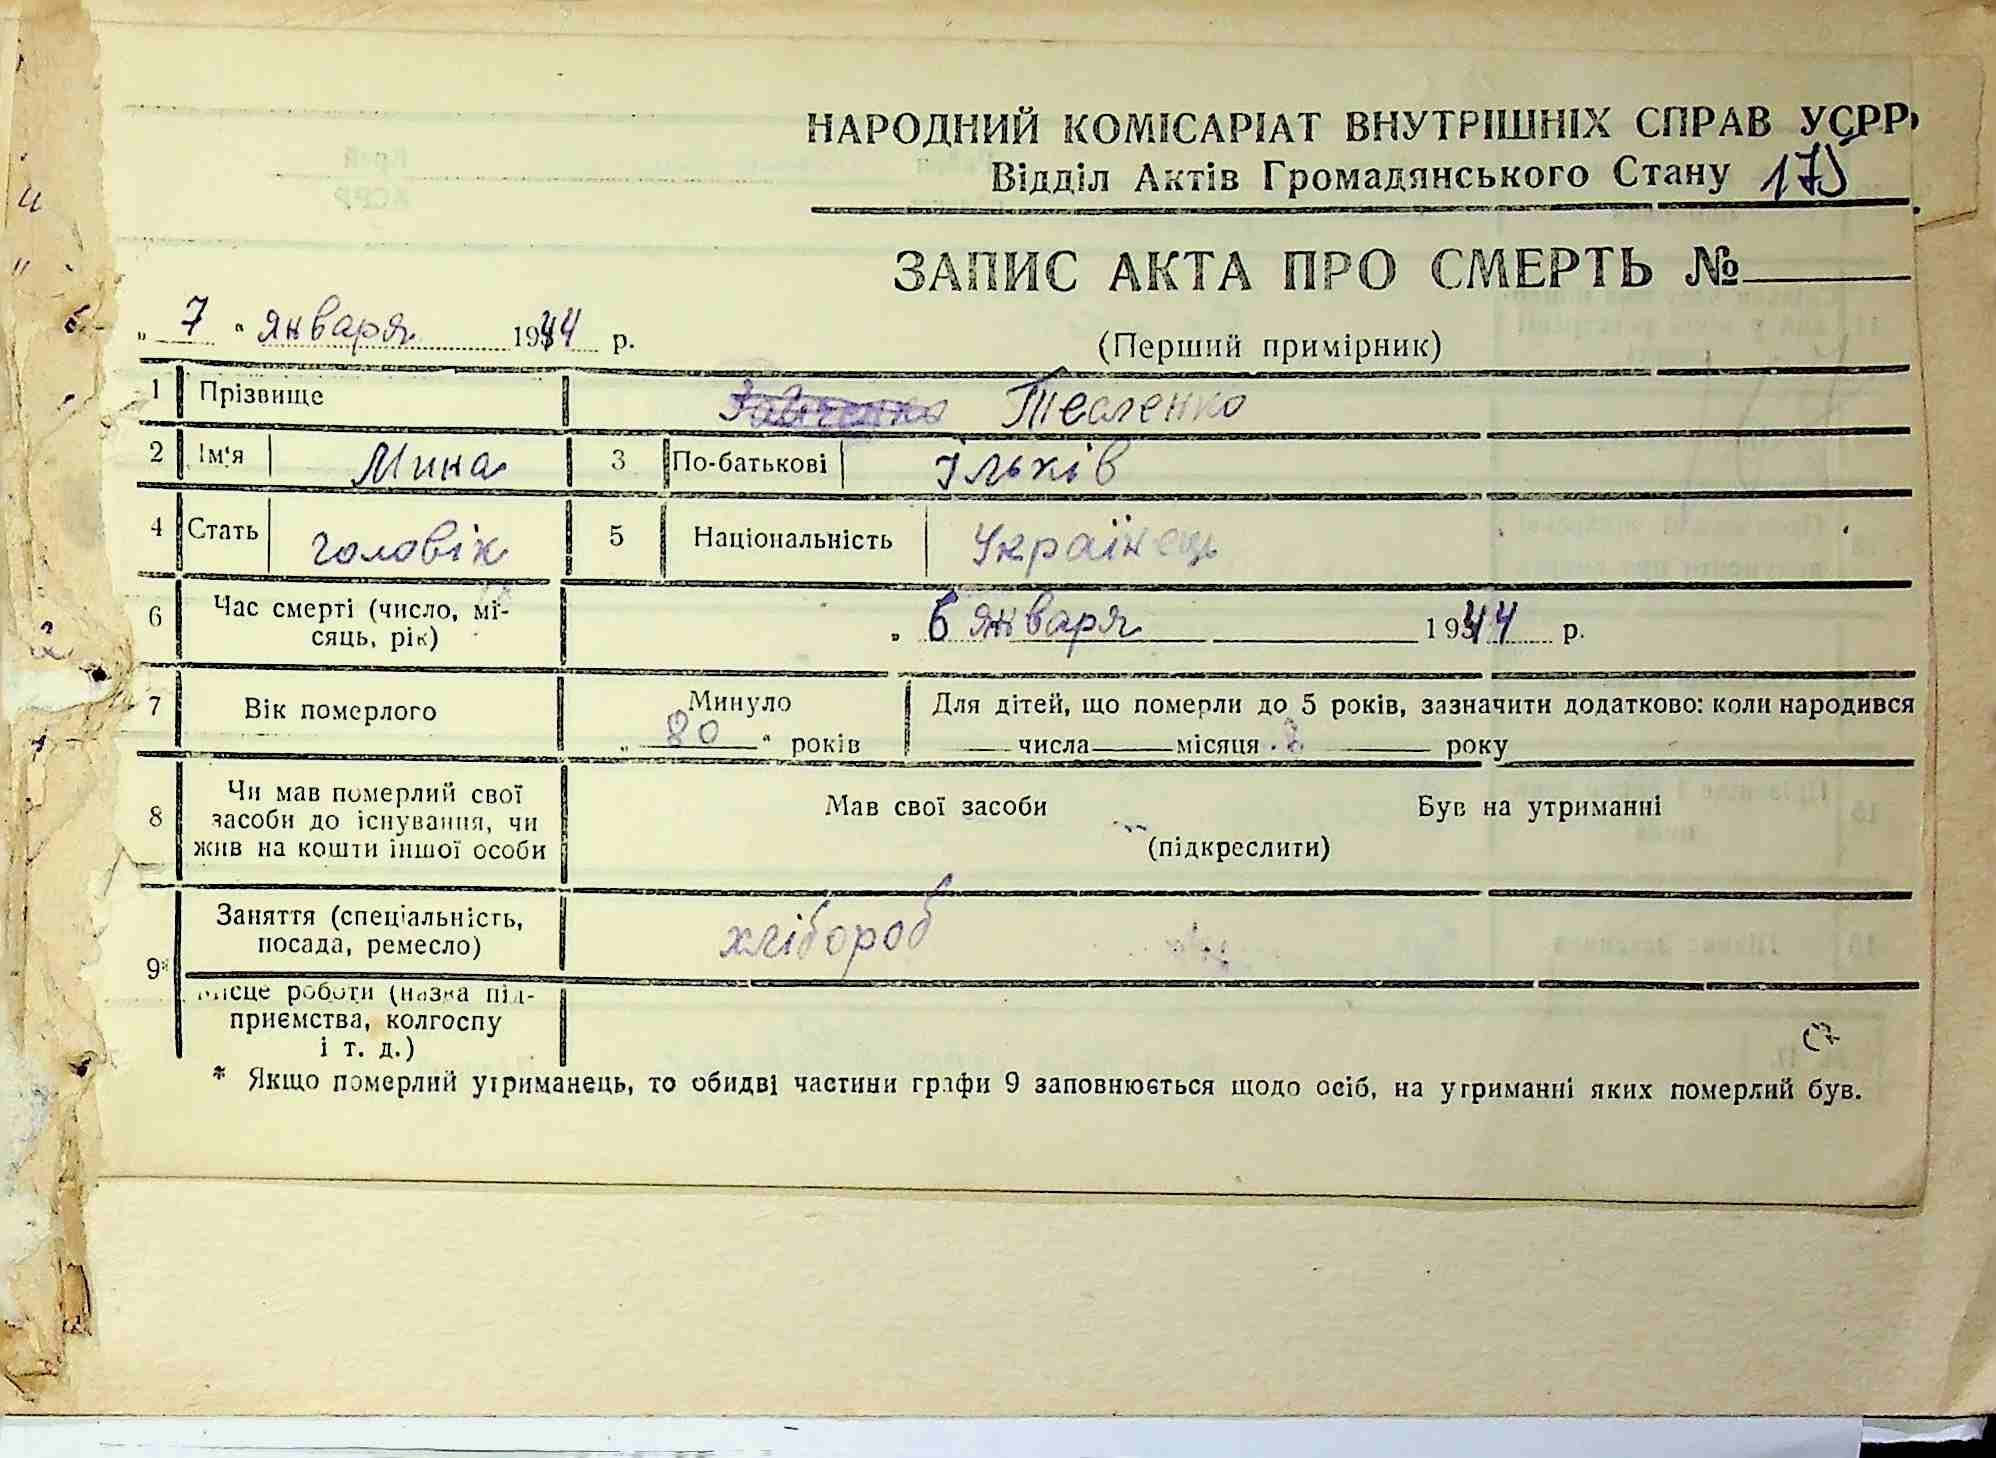 НАРОДНИЙ КОМІСАРІАТ ВНУТРІШНІХ СПРАВ УСРР
Відділ Актів Громадянського Стану 175
ЗАПИС АКТА ПРО СМЕРТЬ №
„ 7 “ января 1944 р.
(Перший примірник)
1 Прізвище Тесленко
2 Ім'я Мина 3 По-батькові Ільків
4 Стать чоловік 5 Національність Українець
6 Час смерті (число, мі-
сяць, рік) „ 6 января 1944 р.
7 Вік померлого Минуло „ 80 “ років
Для дітей, що померли до 5 років, зазначити додатково: коли народився
числа місяця року
8 Чи мав померлий свої
засоби до існування, чи
жив на кошти іншої особи
Мав свої засоби Був на утриманні
(підкреслити)
9* Заняття (спеціальність,
посада, ремесло) хлібороб
Місце роботи (назва під-
приємства, колгоспу
і т. д.)
* Якщо померлий утриманець, то обидві частини графи 9 заповнюється щодо осіб, на утриманні яких померлий був.